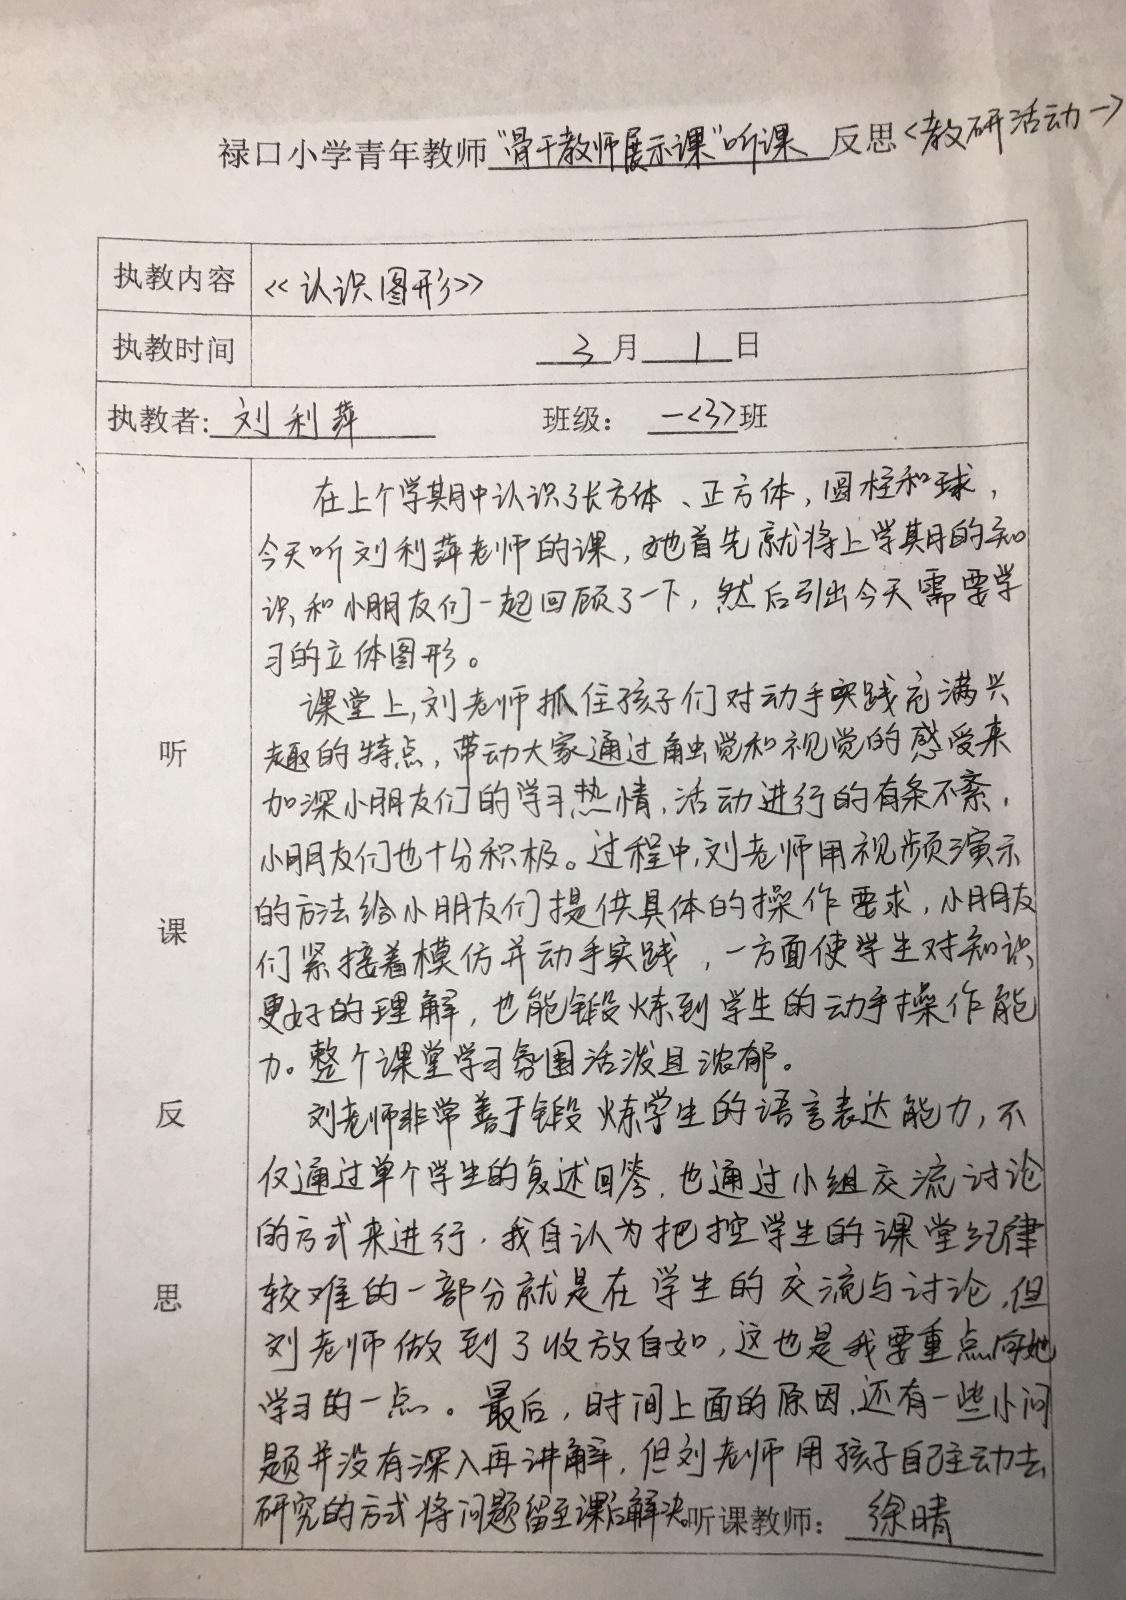 禄口小学青年教师“骨干教师展示课”听课 反思<教研活动一>
执教内容 <<认识图形>>
执教时间 3月1日
执教者: 刘利萍 班级： 一<3>班
听课反思
在上个学期中认识了长方体、正方体，圆柱和球，
今天听刘利萍老师的课，她首先就将上学期的知
识和小朋友们一起回顾了一下，然后引出今天需要学
习的立体图形。
课堂上，刘老师抓住孩子们对动手实践充满兴
趣的特点，带动大家通过触觉和视觉的感受来
加深小朋友们的学习热情，活动进行的有条不紊，
小朋友们也十分积极。过程中，刘老师用视频演示
的方法给小朋友们提供具体的操作要求，小朋友
们紧接着模仿并动手实践，一方面使学生对知识
更好的理解，也能锻炼到学生的动手操作能
力。整个课堂学习氛围活泼且浓郁。
刘老师非常善于锻炼学生的语言表达能力，不
仅通过单个学生的复述回答，也通过小组交流讨论
的方式来进行，我自认为把控学生的课堂纪律
较难的一部分就是在学生的交流与讨论，但
刘老师做到了收放自如，这也是我要重点向她
学习的一点。最后，时间上面的原因，还有一些小问
题并没有深入再讲解，但刘老师用孩子自己主动去
研究的方式将问题留至课后解决。听课教师： 徐晴